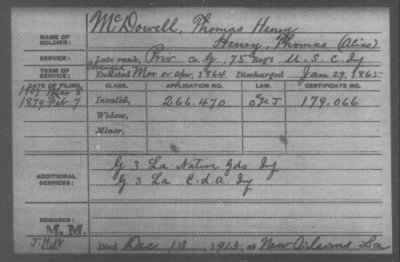 NAME OF SOLDIER: McDowell, Thomas Henry
Henry, Thomas (Alias)
SERVICE: Late rank, Priv Co. G, 75 Reg't U.S.C. Inf
TERM OF SERVICE: Enlisted Mar or Apr, 1864 Discharged Jan 29, 1865
DATE OF FILING. CLASS. APPLICATION NO. LAW. CERTIFICATE NO.
1879 Feb 7 Invalid, 266.470 179.066
Widow,
Minor,
ADDITIONAL SERVICES: G 3 La Native Gds Inf
G 3 La C.d.A. Inf
REMARKS:
M. M.
Died Dec 1913, at New Orleans La